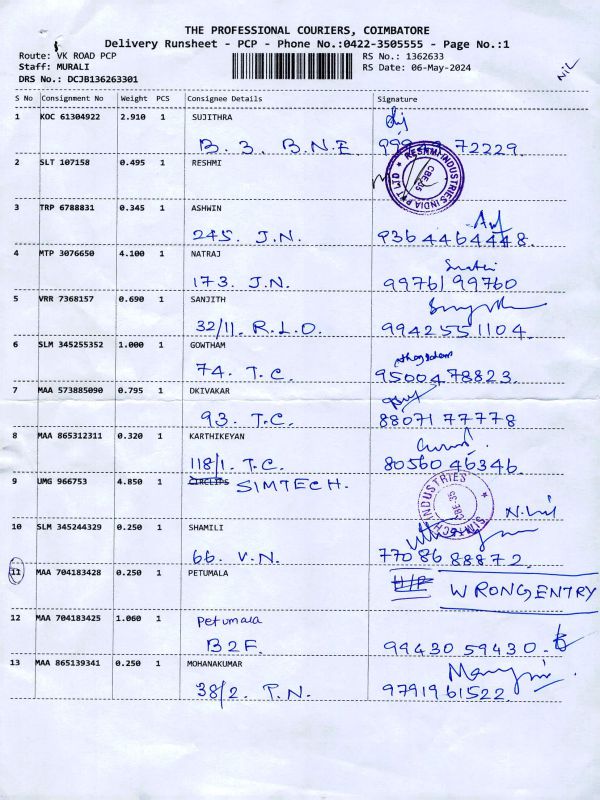 THE PROFESSIONAL COURIERS, COIMBATORE
Delivery Runsheet - PCP - Phone No.:0422-3505555 - Page No.:1
Route: VK ROAD PCP
RS No.: 1362633
Staff: MURALI
RS Date: 06-May-2024
DRS No.: DCJB136263301
NIL
S No Consignment No Weight PCS Consignee Details Signature
1 KOC 61304922 2.910 1 SUJITHRA
B. 3. B.N.E 72229.
2 SLT 107158 0.495 1 RESHMI
RESHMI INDUSTRIES INDIA PVT LTD
CBE-35
3 TRP 6788831 0.345 1 ASHWIN
245. J.N. 9364464448.
4 MTP 3076650 4.100 1 NATRAJ
173. J.N. 99761 99760
5 VRR 7368157 0.690 1 SANJITH
32/11. R.L.O. 9942551104.
6 SLM 345255352 1.000 1 GOWTHAM
74. T.C. 9500478823.
7 MAA 573885090 0.795 1 DKIVAKAR
93. T.C. 88071 77778
8 MAA 865312311 0.320 1 KARTHIKEYAN
118/1. T.C. 80560 46346.
9 UMG 966753 4.850 1 CIRCLITS SIMTECH.
SIMTECH INDUSTRIES
CBE-35
10 SLM 345244329 0.250 1 SHAMILI
66. V.N. 77086 88872.
11 MAA 704183428 0.250 1 PETUMALA
WRONG ENTRY
12 MAA 704183425 1.060 1 Petumala
B2F. 99430 59430.
13 MAA 865139341 0.250 1 MOHANAKUMAR
38/2. P.N. 9791961522.